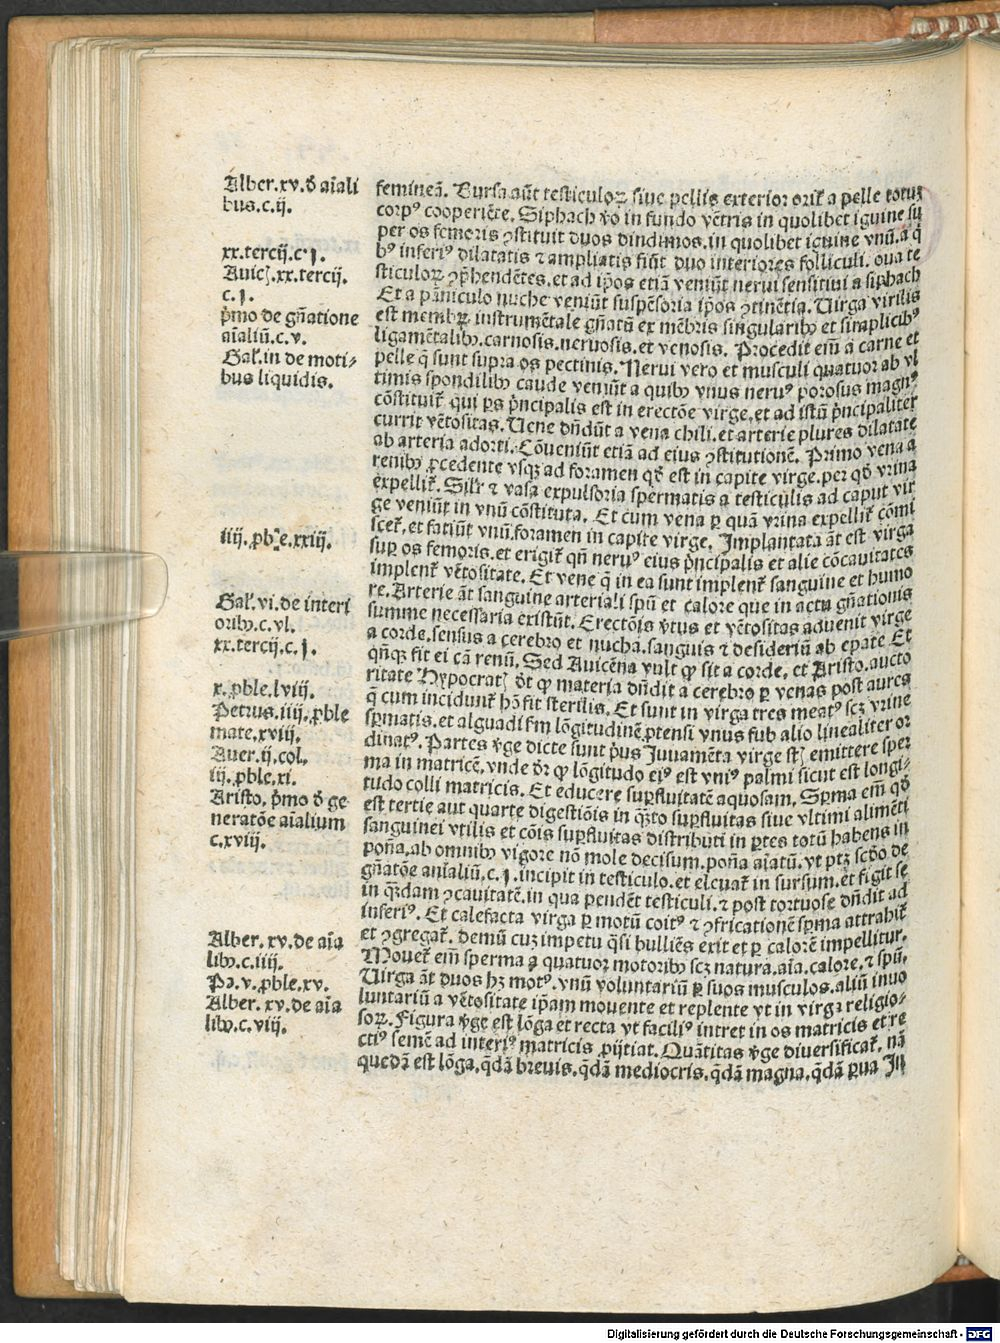 Alber.xv.ď aīali
bus.c.ij.
xx.tercij.c.j.
Auicꝫ.xx.tercij.
c.j.
p̄mo de gn̄atione
aīaliū.c.v.
Gal'.in de moti-
bus liquidis.
iiij.ꝓble.xxiij.
Gal'.vi.de interi
oribꝰ.c.vl.
xx.tercij.c.j.
x.ꝓble.lviij.
Petrus.iiij.ꝓble
mate.xviij.
Auer.ij.col.
iij.ꝓble.xi.
Aristo. p̄mo ď ge
neratōe aīalium
c.xviij.
Alber.xv.de aīa
libꝰ.c.iiij.
Pa.v.ꝓble.xv.
Alber.xv.de aīa
libꝰ.c.viij.
femineā. Bursa aūt testiculoꝝ siue pellis exterior orit̄ a pelle totuꝫ
corpꝰ cooperiēte. Siphach v̊o in fundo vētris in quolibet iguine su
per os femoris ꝯstituit duos dindimos.in quolibet iguine vnū.a q̄
bꝰ inferiꝰ dilatatis ⁊ ampliatis fiūt duo interiores folliculi. oua te
sticuloꝝ ꝯp̄hendētes.et ad ip̄os etiā veniūt nerui sensitiui a siphach
Et a pāniculo nuche veniūt suspēsoria ip̄os ꝯtinētia. Uirga virilis
est membꝝ instrumētale gn̄atū ex mēbris singularibꝰ et simplicibꝰ
ligamētalibꝰ.carnosis.neruosis.et venosis. Procedit em̄ a carne et
pelle q̄ sunt supra os pectinis. Nerui vero et musculi quatuor ab vl
timis spondilibꝰ caude veniūt a quibꝰ vnus neruꝰ porosus magnꝰ
cōstituit̄ qui ꝑs p̄ncipalis est in erectōe virge.et ad istū p̄ncipaliter
currit vētositas. Uene dn̄dūt a vena chili.et arterie plures dilatate
ab arteria adorti. Cōueniūt etiā ad eius ꝯstitutionē. Primo vena a
renibꝰ ꝓcedente vsqꝫ ad foramen qd̄ est in capite virge.per qd̄ vrina
expellit̄. Sil'r ⁊ vasa expulsoria spermatis a testiculis ad caput vir
ge veniūt in vnū cōstituta. Et cum vena ꝑ quā vrina expellit̄ cōmi
scet̄.et fatiūt vnū foramen in capite virge. Implantata āt est virga
suꝑ os femoris.et erigit̄ qn̄ neruꝰ eius p̄ncipalis et alie cōcauitates
implent̄ vētositate. Et vene q̄ in ea sunt implent̄ sanguine et humo
re. Arterie āt sanguine arteriali spū et calore que in actu gn̄ationis
summe necessaria existūt. Erectōis v̊tus et vētositas aduenit virge
a corde.sensus a cerebro et nucha.sanguis ⁊ desideriū ab epate Et
qn̄qꝫ fit ei cā renū. Sed Auicēna vult ꝙ sit a corde. et Aristo.aucto
ritate Hypocratꝭ d̄t ꝙ materia dn̄dit a cerebro ꝑ venas post aures
q̄ cum incidunt̄ hō fit sterilis. Et sunt in virga tres meatꝰ scꝫ vrine
sꝑmatis.et alguadi fm̄ lōgitudinē ꝓtensi vnus sub alio linealiter or
dinatꝰ. Partes v̊ge dicte sunt p̄us Juuamēta virge st̄ emittere sper
ma in matricē.vnde dr̄ ꝙ lōgitudo eiꝰ est vniꝰ palmi sicut est longi-
tudo colli matricis. Et educere suꝑfluitatē aquosam. Sꝑma em̄ qd̄
est tertie aut quarte digestiōis in qn̄to suꝑfluitas siue vltimi alimēti
sanguinei vtilis et cōis suꝑfluitas distributi in ꝑtes totū habens in
potn̄a.ab omnibꝰ vigore nō mole decisum.potn̄a aīatū.vt ptꝫ scd̄o de
gn̄atōe aīaliū.c.j.incipit in testiculo.et eleuat̄ in sursum.et figit se
in q̄dam ꝯcauitatē.in qua pendēt testiculi.⁊ post tortuose dn̄dit ad
inferiꝰ. Et calefacta virga ꝑ motū coitꝰ ⁊ ꝯfricationē sꝑma attrahit̄
et ꝯgregat̄. demū cuꝫ impetu q̄si bulliēs exit et ꝑ calorē impellitur.
Mouet̄ em̄ sperma a quatuor motoribꝰ scꝫ natura.aīa.calore.⁊ spū.
Uirga āt duos hꝫ motꝰ.vnū voluntariū ꝑ suos musculos.aliū inuo
luntariū a vētositate ip̄am mouente et replente vt in virga religio-
soꝝ. Figura v̊ge est lōga et recta vt faciliꝰ intret in os matricis et re
ctiꝰ semē ad interiꝰ matricis ꝓijtiat. Quātitas v̊ge diuersificat̄. nā
quedā est lōga.q̄dā breuis.q̄dā mediocris.q̄dā magna.q̄dā ꝑua In
Digitalisierung gefördert durch die Deutsche Forschungsgemeinschaft - DFG